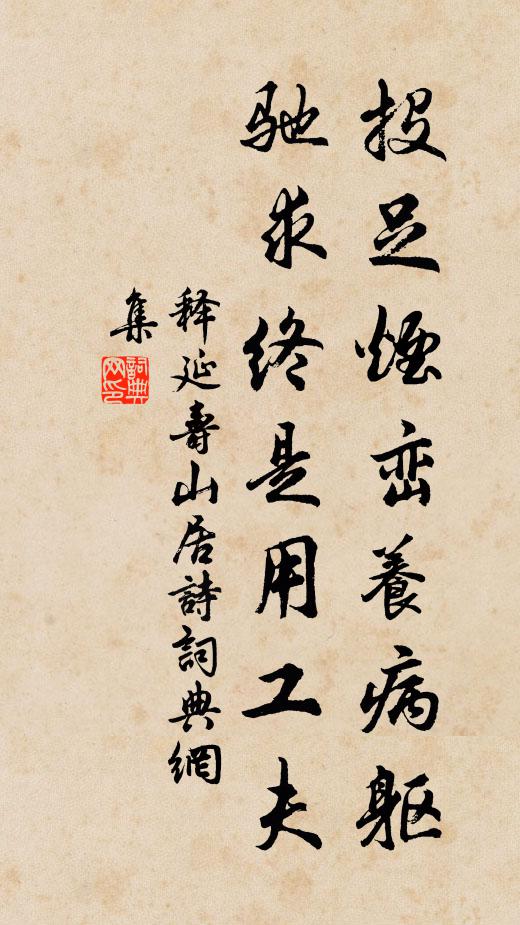 投足煙峦養病躯
驰求终是用工夫
释延壽山居詩詞典網
集
詞典网印